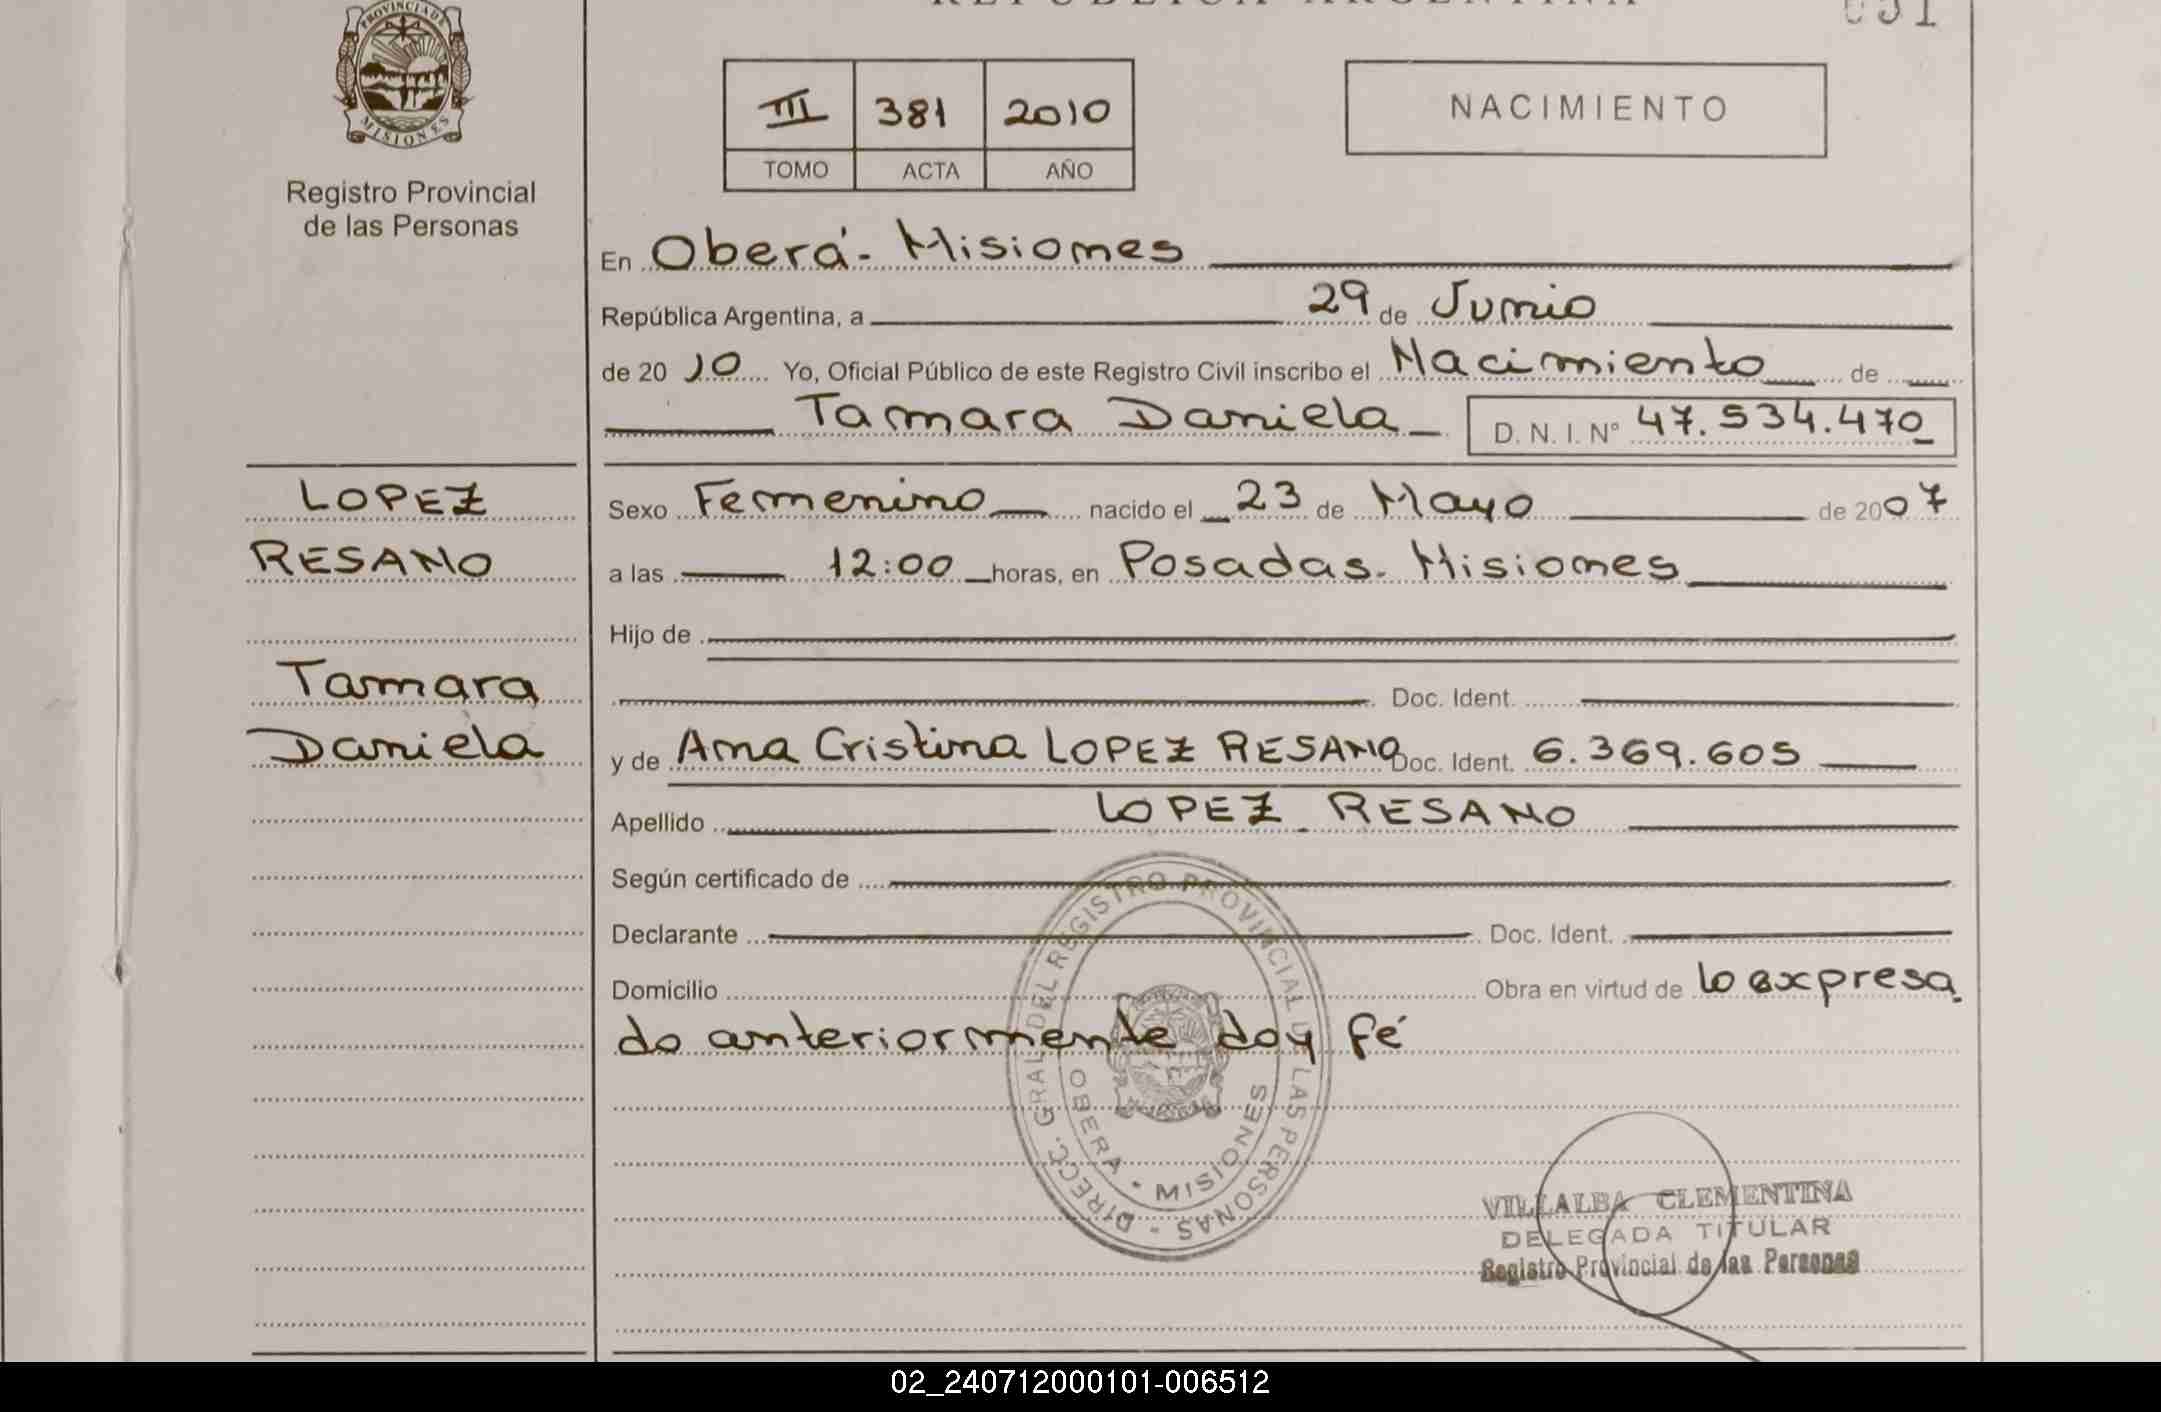 REPUBLICA ARGENTINA
PROVINCIA DE MISIONES
Registro Provincial
de las Personas
III 381 2010
TOMO ACTA AÑO
NACIMIENTO
En Oberá - Misiones
República Argentina, a 29 de Junio
de 2010 Yo, Oficial Público de este Registro Civil inscribo el Nacimiento de
Tamara Daniela D. N. I. N° 47.534.470
LOPEZ
RESANO
Tamara
Daniela
Sexo Femenino nacido el 23 de Mayo de 2007
a las 12:00 horas, en Posadas - Misiones
Hijo de
Doc. Ident.
y de Ana Cristina LOPEZ RESANO Doc. Ident. 6.369.605
Apellido LOPEZ RESANO
Según certificado de
Declarante Doc. Ident.
Domicilio Obra en virtud de lo expresa
do anteriormente doy fé
DIRECC. GRAL DEL REGISTRO PROVINCIAL DE LAS PERSONAS -
OBERA - MISIONES
VILLALBA CLEMENTINA
DELEGADA TITULAR
Registro Provincial de las Personas
02_240712000101-006512